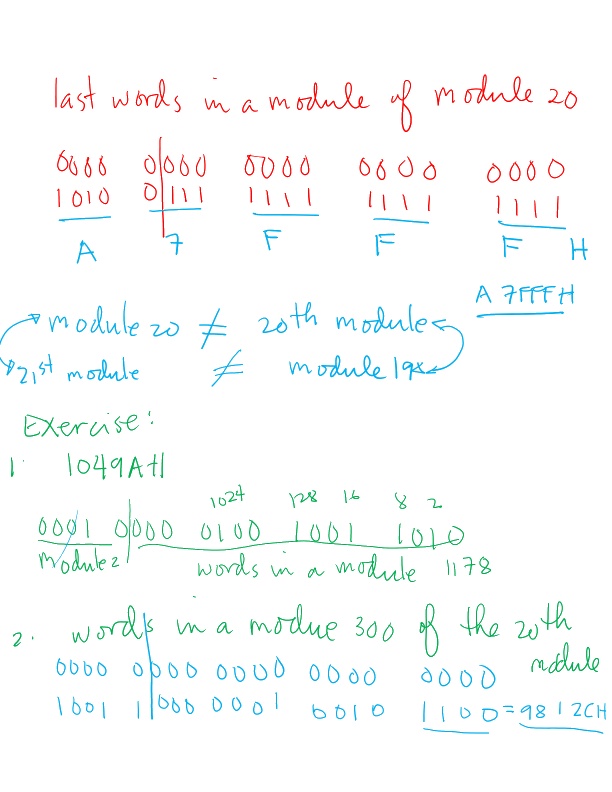 last words in a module of module 20
0000 0000 0000 0000 0000
1010 0111 1111 1111 1111
A 7 F F F H
A 7FFFH
module 20 ≠ 20th module
21st module ≠ module 19
Exercise:
1. 1049AH
1024 128 16 8 2
0001 0000 0100 1001 1010
module 2 words in a module 1178
2. words in a modue 300 of the 20th
module
0000 0000 0000 0000 0000
1001 1000 0001 0010 1100 = 9812CH